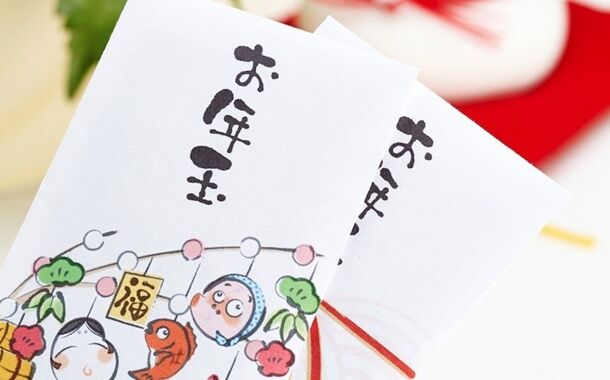 お年玉
福
お年